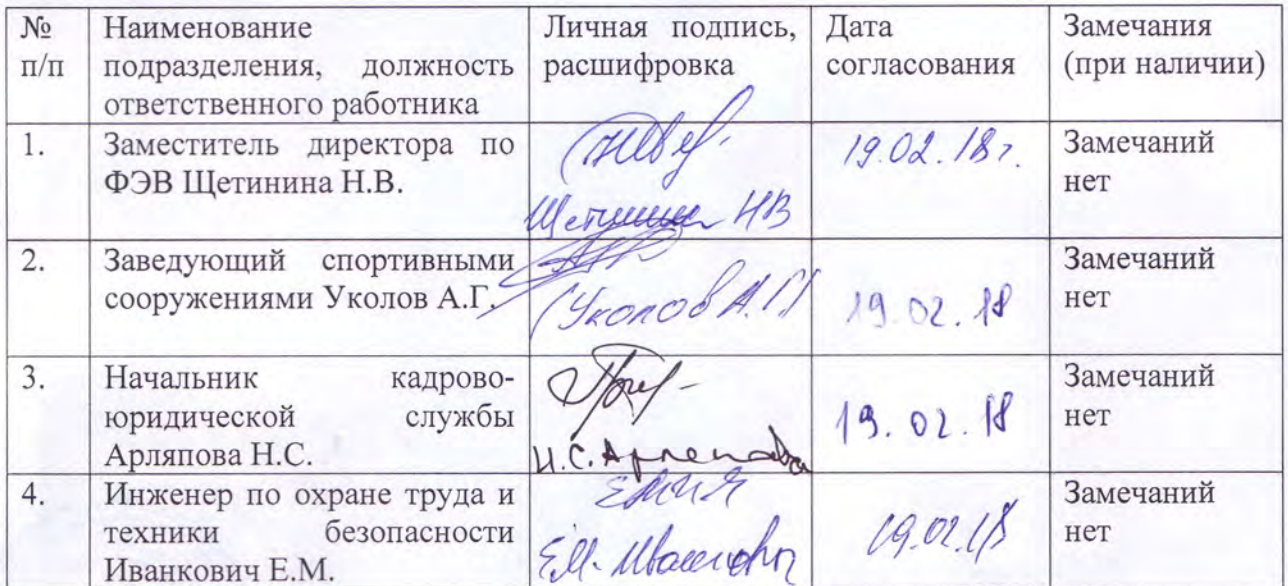 № п/п
Наименование подразделения, должность ответственного работника
Личная подпись, расшифровка
Дата согласования
Замечания (при наличии)
1.
Заместитель директора по
ФЭВ Щетинина Н.В.
Щетинина НВ
19.02.18г.
Замечаний
нет
2.
Заведующий спортивными
сооружениями Уколов А.Г.
(Уколов А.Г)
19.02.18
Замечаний
нет
3.
Начальник кадрово-
юридической службы
Арляпова Н.С.
Н.С. Арляпова
19.02.18
Замечаний
нет
4.
Инженер по охране труда и
техники безопасности
Иванкович Е.М.
Е.М. Иванкович
19.02.18
Замечаний
нет